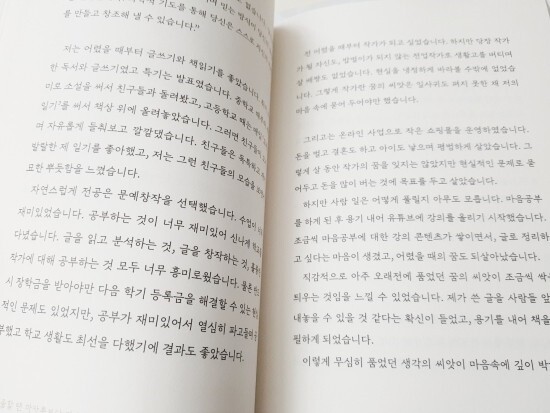 를 만들고 창조해 낼 수 있습니다."
저는 어렸을 때부터 글쓰기와 책읽기를 좋아했습니다.
한 독서와 글쓰기였고 특기는 발표였습니다. 중학교
미로 소설을 써서 친구들과 돌려봤고, 고등학교 때는
일기'를 써서 책상 위에 올려놓았습니다. 그러면 친구들이
며 자유롭게 들춰보고 깔깔댔습니다. 친구들은 톡톡
발랄한 제 일기를 좋아했고, 저는 그런 친구들의 모습을
묘한 뿌듯함을 느꼈습니다.
자연스럽게 전공은 문예창작을 선택했습니다. 수업이
재미있었습니다. 공부하는 것이 너무 재미있어 신나게
다녔습니다. 글을 읽고 분석하는 것, 글을 창작하는 것,
작가에 대해 공부하는 것 모두 너무 흥미로웠습니다. 물론
시 장학금을 받아야만 다음 학기 등록금을 해결할 수 있는
적인 문제도 있었지만, 공부가 재미있어서 열심히 파고들며
부했고 학교 생활도 최선을 다했기에 결과도 좋았습니다.
전 어렸을 때부터 작가가 되고 싶었습니다. 하지만 당장 작가
가 될 자신도, 밥벌이가 되지 않는 전업작가로 생고생를 버티며
살 배짱도 없었습니다. 현실을 냉정하게 따라볼 수밖에 없었습
니다. 그렇게 작가의 꿈의 씨앗은 잎사귀도 펴지 못한 채 저의
마음 속에 묻어 두어야만 했습니다.
그리고는 온라인 사업으로 작은 쇼핑몰을 운영하였습니다.
돈을 벌고 결혼도 하고 아이도 낳으며 평범하게 살았습니다. 그
렇게 삶 동안 작가의 꿈을 잊지는 않았지만 현실적인 문제로 물
어두고 돈을 많이 버는 것에 목표를 두고 살았습니다.
하지만 사람 일은 어떻게 풀릴지 아무도 모릅니다. 마음공부
를 하게 된 후 용기 내어 유튜브에 강의를 올리기 시작했습니다.
조금씩 마음공부에 대한 강의 콘텐츠가 쌓이면서, 글로 정리하
고 싶다는 마음이 생겼고, 어렸을 때의 꿈도 되살아났습니다.
직감적으로 아주 오래전에 품었던 꿈의 씨앗이 조금씩 싹
틔우는 것임을 느낄 수 있었습니다. 제가 쓴 글을 사람들 앞
내놓을 수 있을 것 같다는 확신이 들었고, 용기를 내어 책을
필하게 되었습니다.
이렇게 무심히 품었던 생각의 씨앗이 마음속에 깊이 박